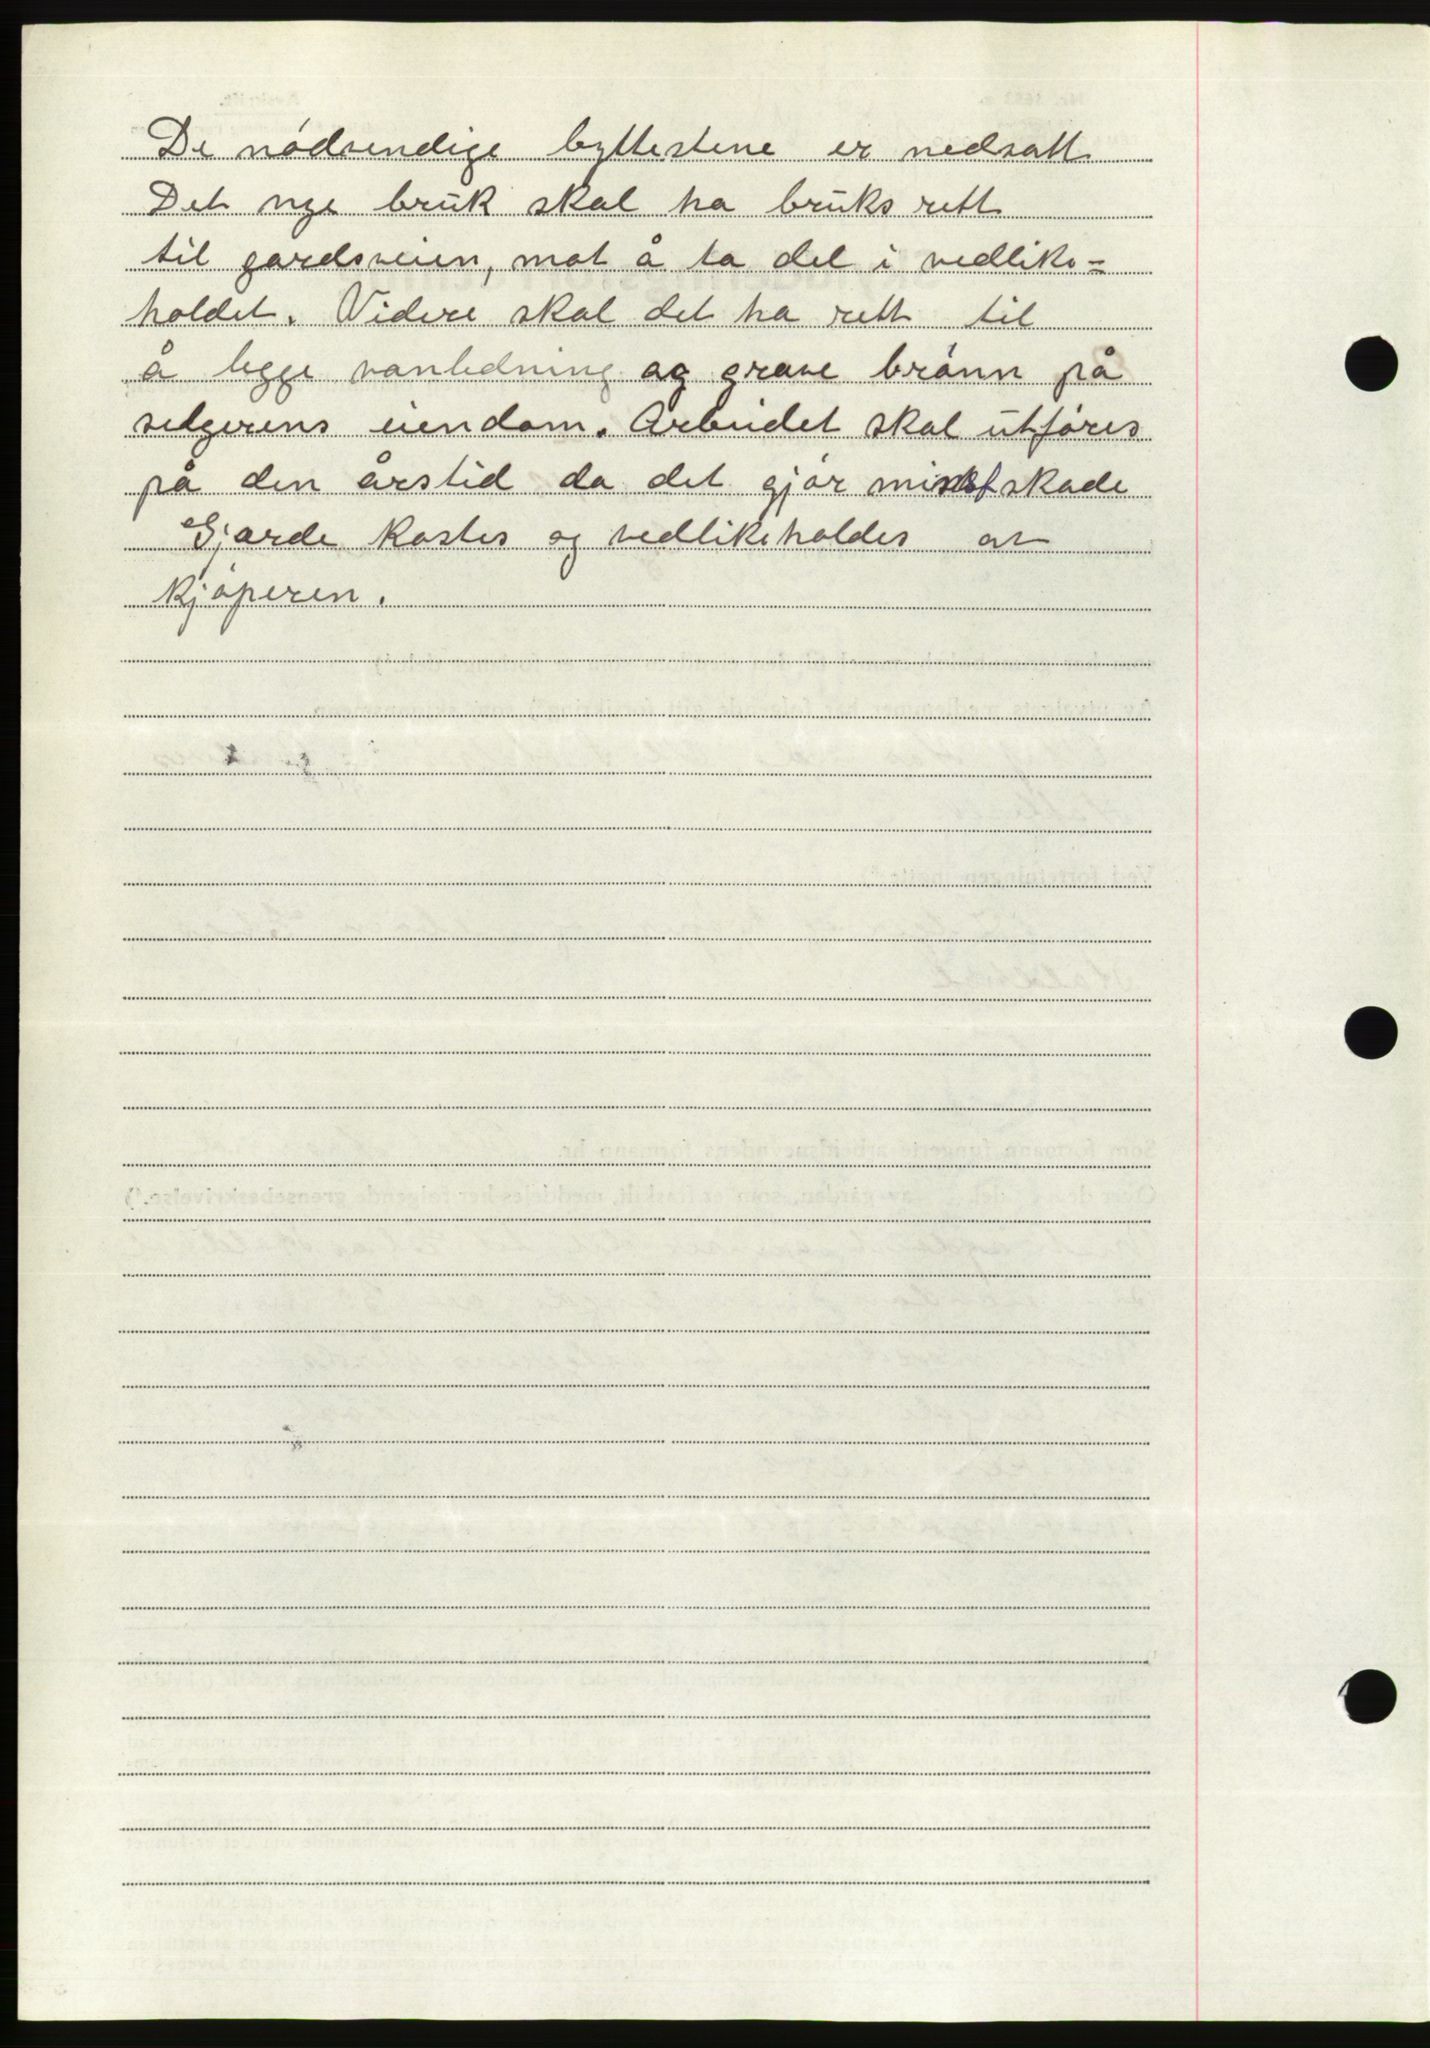 De nødvendige byttestene er nedsatt
Det nye bruk skal ha bruksrett
til gardsveien, mot å ta del i vedlike-
holdet. Videre skal det ha rett til
å legge vanledning og grave brønn på
selgerens eiendom. Arbeidet skal utføres
på den årstid da det gjør minst skade
Gjerde kostes og vedlikeholdes av
kjøperen.